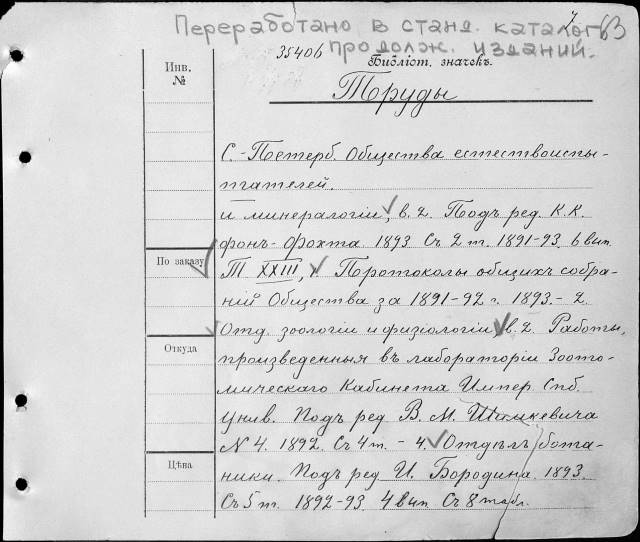 Переработано в станд. каталог 63
продолж. изданий.
35406
Библіот. значекъ.
Инв.
№
Труды
С.-Петерб. Общества естествоиспы-
тателей.
и минералогіи, в. 2. Подъ ред. К.К.
фонъ-Фохта. 1893 Съ 2 т. 1891-93. 6 вып.
По заказу
Т XXIII, Протоколы общихъ собра-
ній Общества за 1891-92 г. 1893. - 2.
Отд. зоологіи и физіологіи, в. 2. Работы,
Откуда
произведенныя въ лабораторіи Зоото-
мическаго Кабинета Импер. Спб.
унив. Подъ ред В. М. Шимкевича
N 4. 1892. Съ 4 т. - 4. Отдѣлъ бота-
Цѣна
ники. Подъ ред И. Бородина. 1893.
Съ 5 т. 1892-93. 4 вып Съ 8 табл.